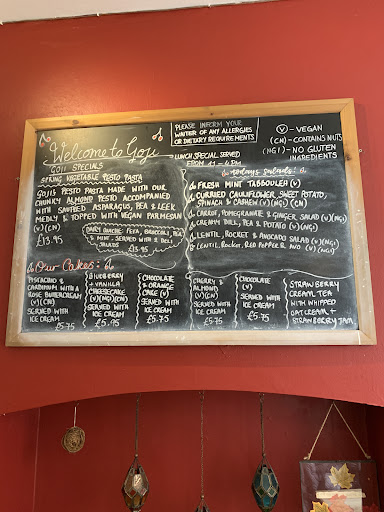 Welcome to Goji
GOJI SPECIALS
SPRING VEGETABLE PESTO PASTA
GOJIS PESTO PASTA MADE WITH OUR
CHUNKY ALMOND PESTO ACCOMPANIED
WITH SAUTEED ASPARAGUS, PEA & LEEK
MEDLY & TOPPED WITH VEGAN PARMESAN
(V)(CN)
£13.95
DAIRY QUICHE: FETA, BROCCOLI, PEA,
MINT, SERVED WITH 2 DELI
SALADS £13.95
PLEASE INFORM YOUR
WAITER OF ANY ALLERGIES
OR DIETARY REQUIREMENTS
(V) - VEGAN
(CN) - CONTAINS NUTS
(NGI) - NO GLUTEN
INGREDIENTS
LUNCH SPECIAL SERVED
FROM 11-4PM
Todays Salads:
FRESH MINT TABBOULEH (V)
CURRIED CAULIFLOWER, SWEET POTATO,
SPINACH & CASHEW (V)(CN)(NGI)
CARROT, POMEGRANATE & GINGER SALAD (V)(NGI)
CREAMY DILL, PEA & POTATO (V)(NGI)
LENTIL, ROCKET & AVOCADO SALAD (V)(NGI)
LENTIL, ROCKET, RED PEPPER & (V)(NGI)
Our Cakes:
PISTACHIO &
CARDAMOM WITH A
ROSE BUTTERCREAM
(V)(CN)
SERVED WITH
ICE CREAM
£5.75
BLUEBERRY
+ VANILLA
CHEESECAKE
(V)(NGI)(CN)
SERVED WITH
ICE CREAM
£5.75
CHOCOLATE
& ORANGE
CAKE (V)
SERVED WITH
ICE CREAM
£5.75
CHERRY &
ALMOND
(V)(CN)
SERVED WITH
ICE CREAM
£5.75
CHOCOLATE
(V)
SERVED WITH
ICE CREAM
£5.75
STRAWBERRY
CREAM TEA
WITH WHIPPED
OAT CREAM +
STRAWBERRY JAM